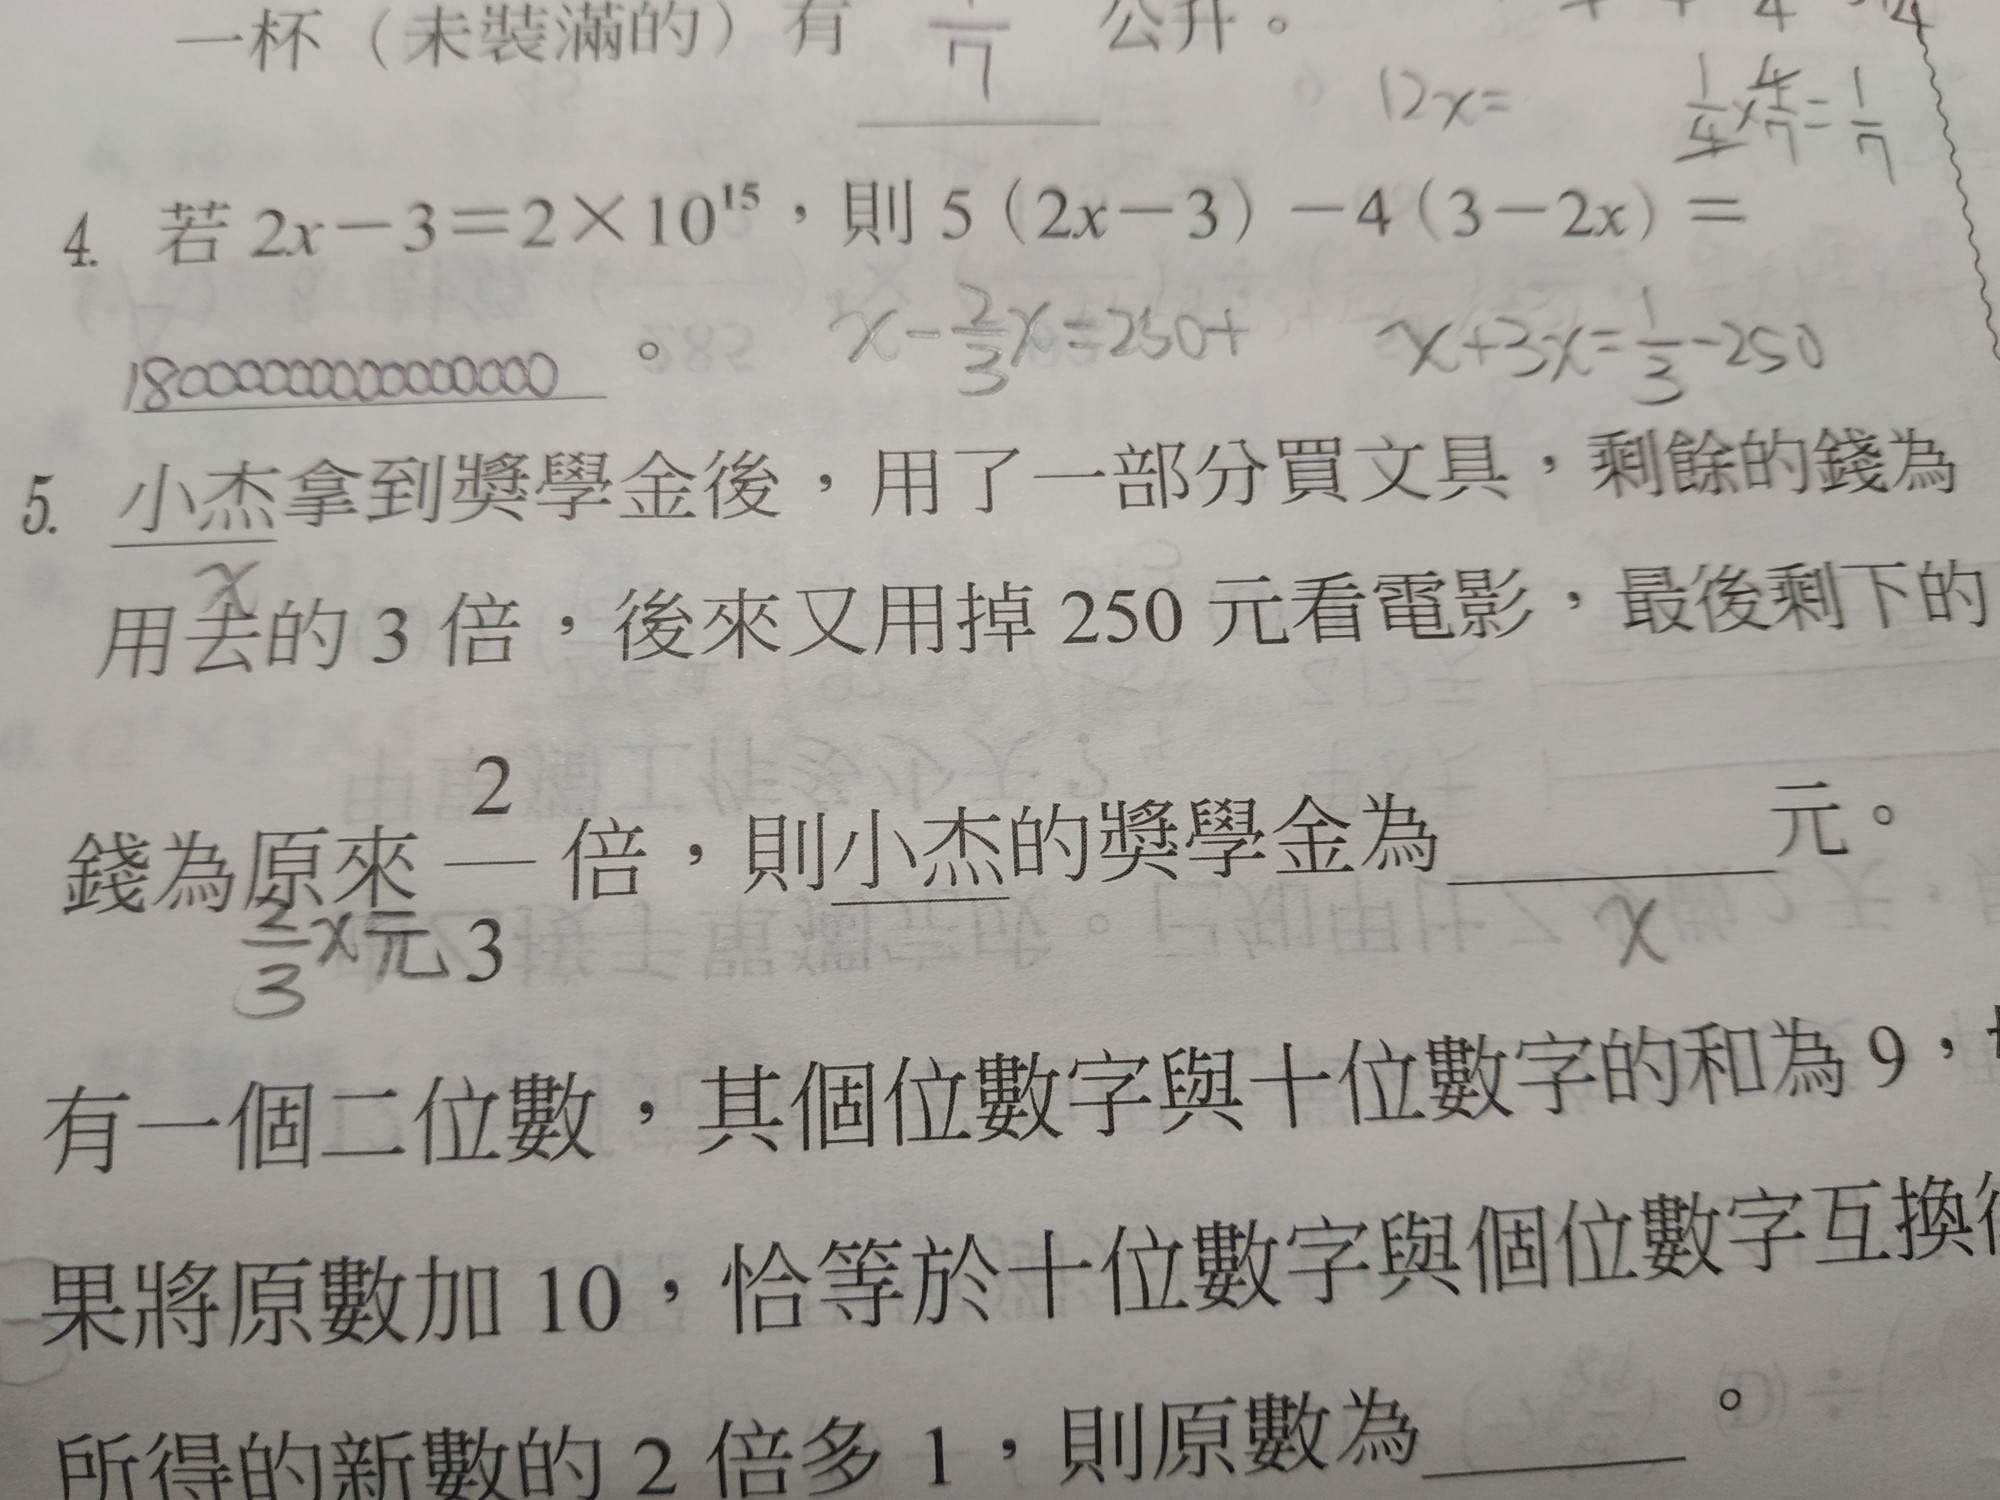 一杯（未裝滿的）有 7 公升。
12x=
1/4×4/7=1/7
4. 若 2x－3＝2×10¹⁵，則 5（2x－3）－4（3－2x）＝
。 x-2/3x=250+ x+3x=1/3-250
5. 小杰拿到獎學金後，用了一部分買文具，剩餘的錢為
x
用去的 3 倍，後來又用掉 250 元看電影，最後剩下的
錢為原來 2/3 倍，則小杰的獎學金為 元。
2/3x元
x
有一個二位數，其個位數字與十位數字的和為 9，
果將原數加 10，恰等於十位數字與個位數字互換
所得的新數的 2 倍多 1，則原數為 。